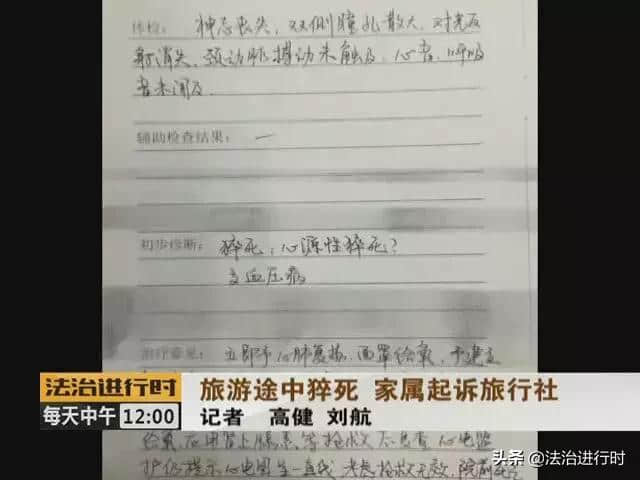 体检：神志丧失，双侧瞳孔散大，对光反
射消失，颈动脉搏动未触及，心音、呼吸
音未闻及。
辅助检查结果：一
初步诊断：猝死：心源性猝死？
高血压病
治疗意见：立即予心肺复苏，面罩给氧，予建立
法治进行时
旅游途中猝死 家属起诉旅行社
每天中午 12:00
记者 高健 刘航
给氧，应用肾上腺素等抢救，心电监
护仍提示心电图呈一直线，抢救无效，院前死亡
头条 @法治进行时